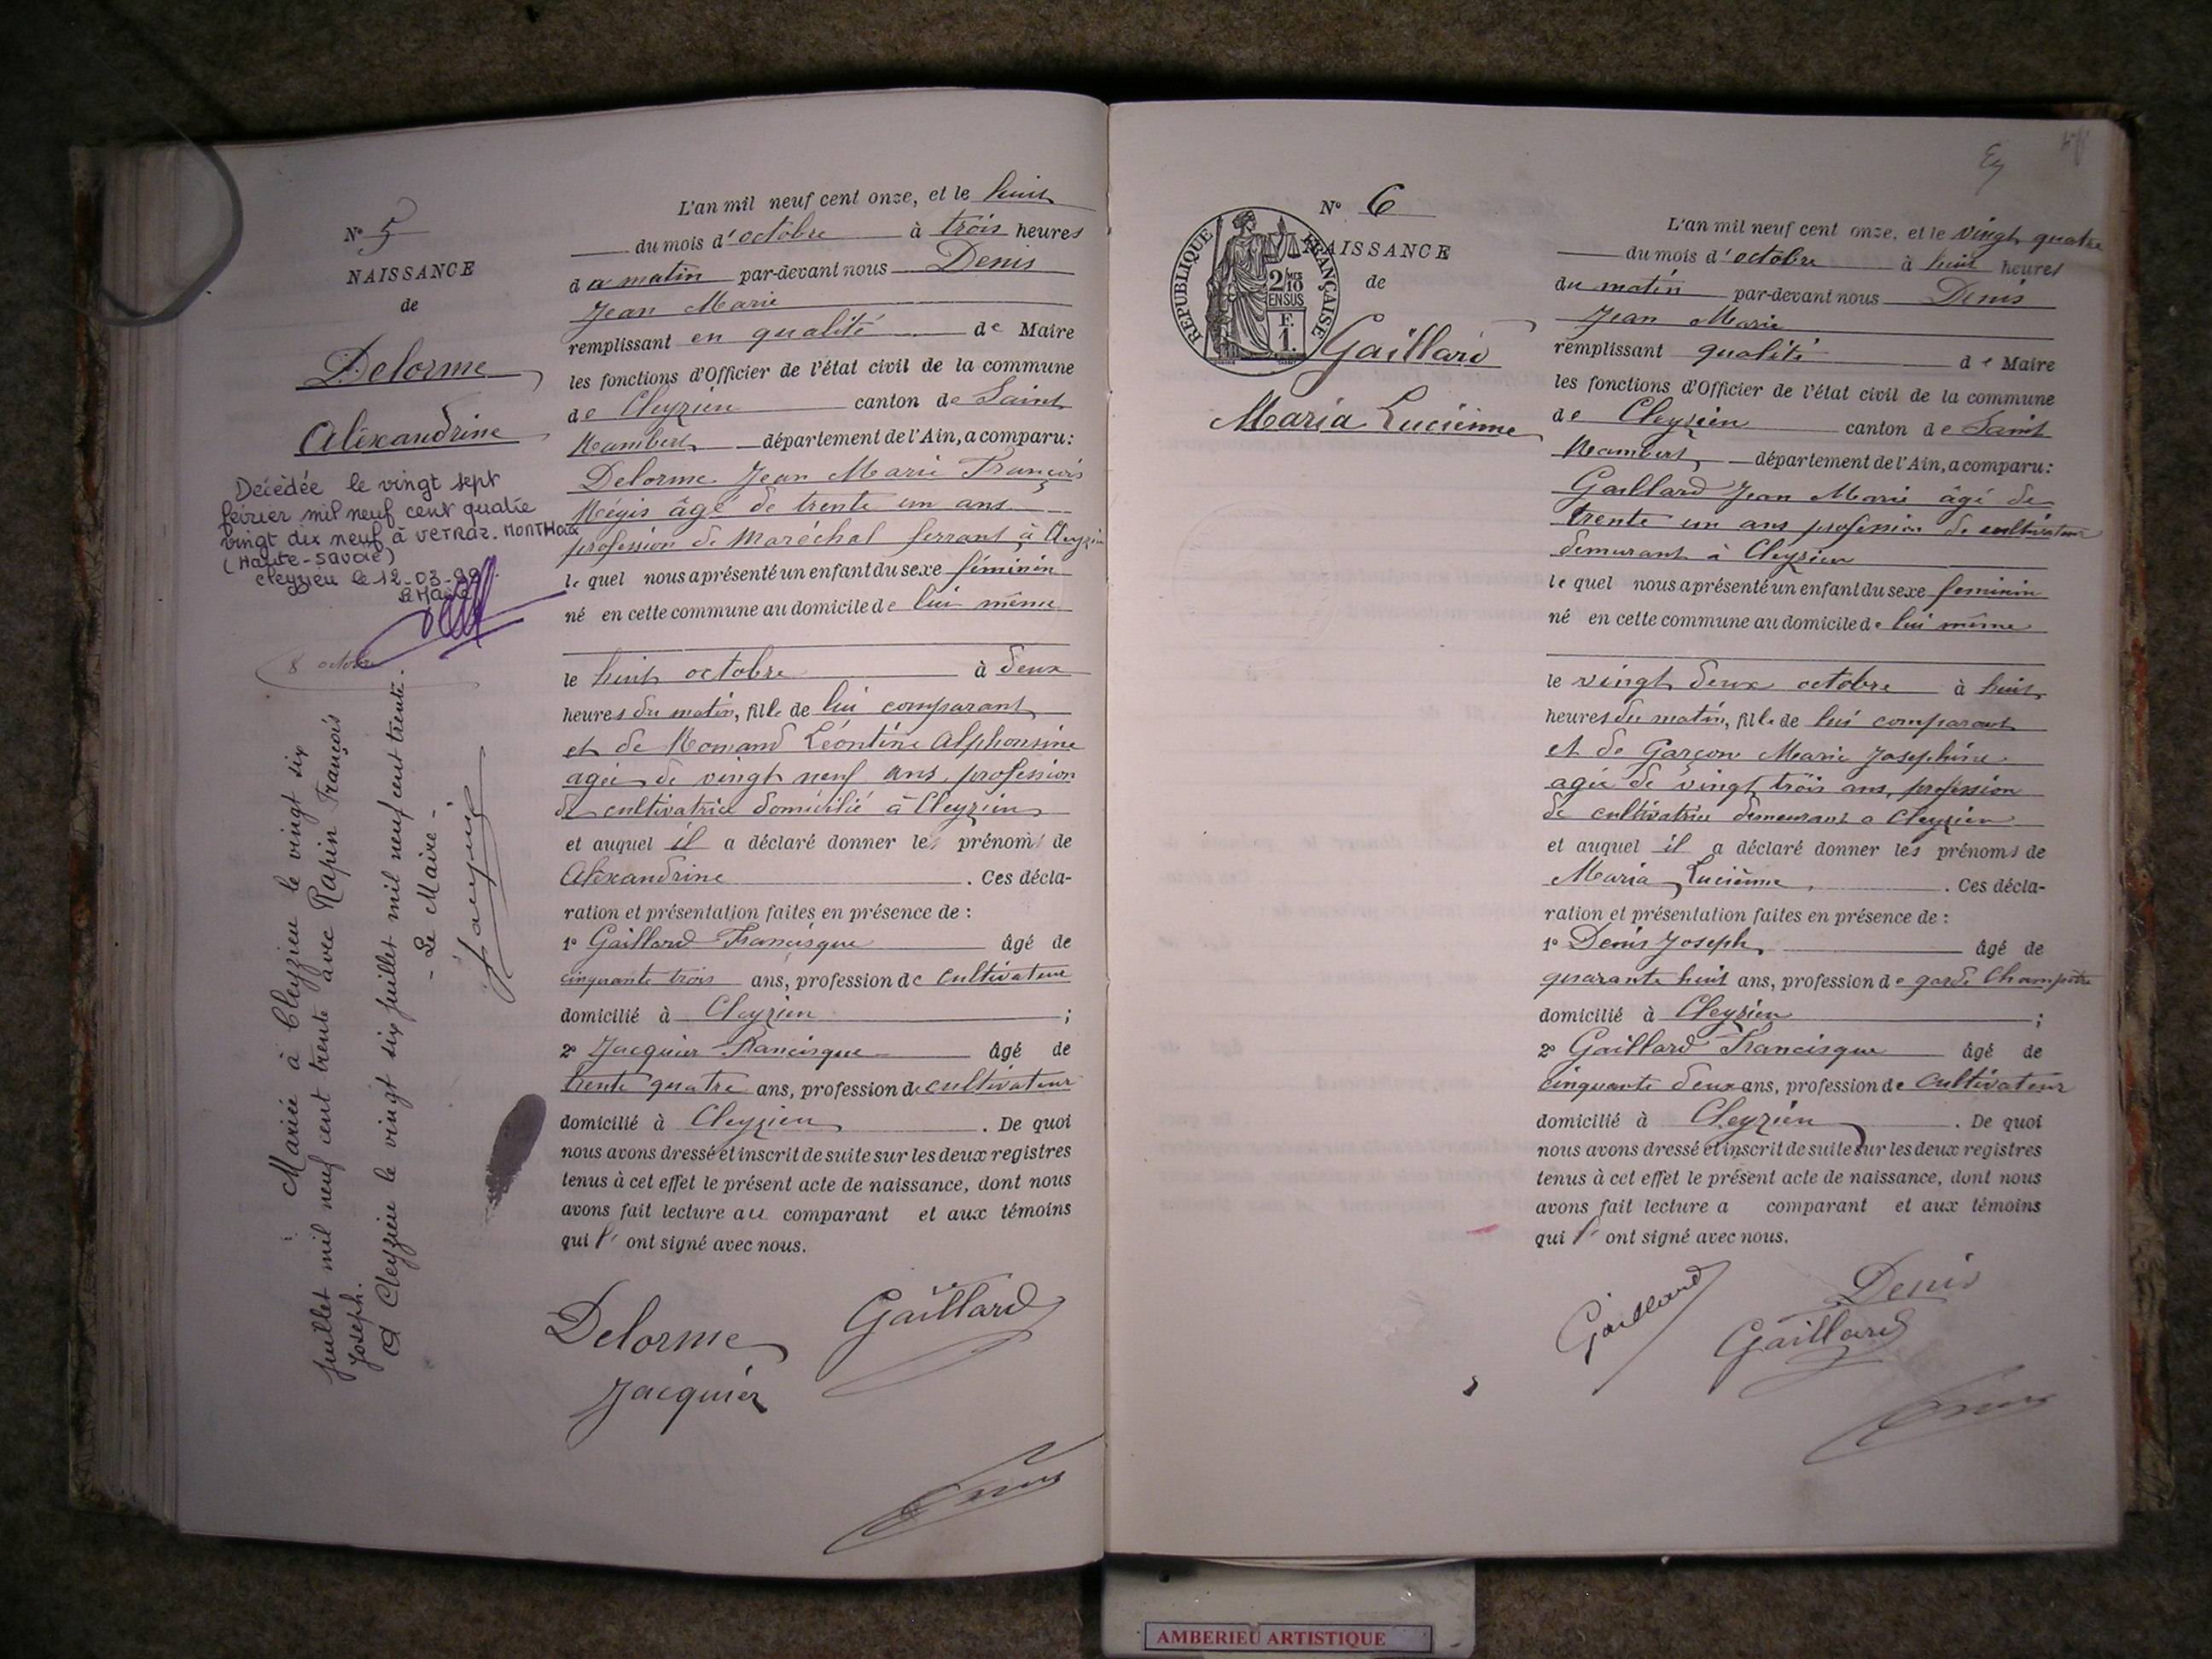 N° 5
NAISSANCE
de
Delorme
Alexandrine
Décédée le vingt sept
février mil neuf cent quatre
vingt dix neuf à VETRAZ-MONTHOUX
(Haute-Savoie)
Cleyzieu le 12-03-99
Le Maire
8 octobre
Mariée à Cleyzieu le vingt six
juillet mil neuf cent trente avec Rapin François
Joseph.
A Cleyzieu le vingt six juillet mil neuf cent trente.
- Le Maire -
L'an mil neuf cent onze, et le huit
du mois d'octobre à trois heures
du matin par-devant nous Denis
Jean Marie
remplissant en qualité de Maire
les fonctions d'Officier de l'état civil de la commune
de Cleyzieu canton de Saint
Rambert département de l'Ain, a comparu:
Delorme Jean Marie François
Régis âgé de trente un ans
profession de Maréchal ferrant à Cleyzieu
lequel nous a présenté un enfant du sexe féminin
né en cette commune au domicile de lui même
le huit octobre à deux
heures du matin, fille de lui comparant
et de Romand Léontine Alphonsine
agée de vingt neuf ans, profession
de cultivatrice domicilié à Cleyzieu
et auquel il a déclaré donner les prénoms de
Alexandrine . Ces décla-
ration et présentation faites en présence de :
1° Gaillard Francisque âgé de
cinquante trois ans, profession de cultivateur
domicilié à Cleyzieu ;
2° Jacquier Francisque âgé de
trente quatre ans, profession de cultivateur
domicilié à Cleyzieu . De quoi
nous avons dressé et inscrit de suite sur les deux registres
tenus à cet effet le présent acte de naissance, dont nous
avons fait lecture au comparant et aux témoins
qui l' ont signé avec nous.
Delorme Gaillard
Jacquier
Denis
N° 6
NAISSANCE
de
RÉPUBLIQUE FRANÇAISE
2/10 MES
EN SUS
F.
1.
Gaillard
Maria Lucienne
L'an mil neuf cent onze, et le vingt quatre
du mois d'octobre à huit heures
du matin par-devant nous Denis
Jean Marie
remplissant qualité de Maire
les fonctions d'Officier de l'état civil de la commune
de Cleyzieu canton de Saint
Rambert département de l'Ain, a comparu:
Gaillard Jean Marie âgé de
trente un ans profession de cultivateur
demurant à Cleyzieu
lequel nous a présenté un enfant du sexe feminin
né en cette commune au domicile de lui même
le vingt deux octobre à huit
heures du matin, fille de lui comparant
et de Garçon Marie Josephine
agée de vingt trois ans, profession
de cultivatrice demeurant a Cleyzieu
et auquel il a déclaré donner les prénoms de
Maria Lucienne . Ces décla-
ration et présentation faites en présence de :
1° Denis Joseph âgé de
quarante huit ans, profession de garde Champêtre
domicilié à Cleyzieu ;
2° Gaillard Francisque âgé de
cinquante deux ans, profession de cultivateur
domicilié à Cleyzieu . De quoi
nous avons dressé et inscrit de suite sur les deux registres
tenus à cet effet le présent acte de naissance, dont nous
avons fait lecture a comparant et aux témoins
qui l' ont signé avec nous.
Gaillard Denis
Gaillard
Denis
AMBERIEU ARTISTIQUE